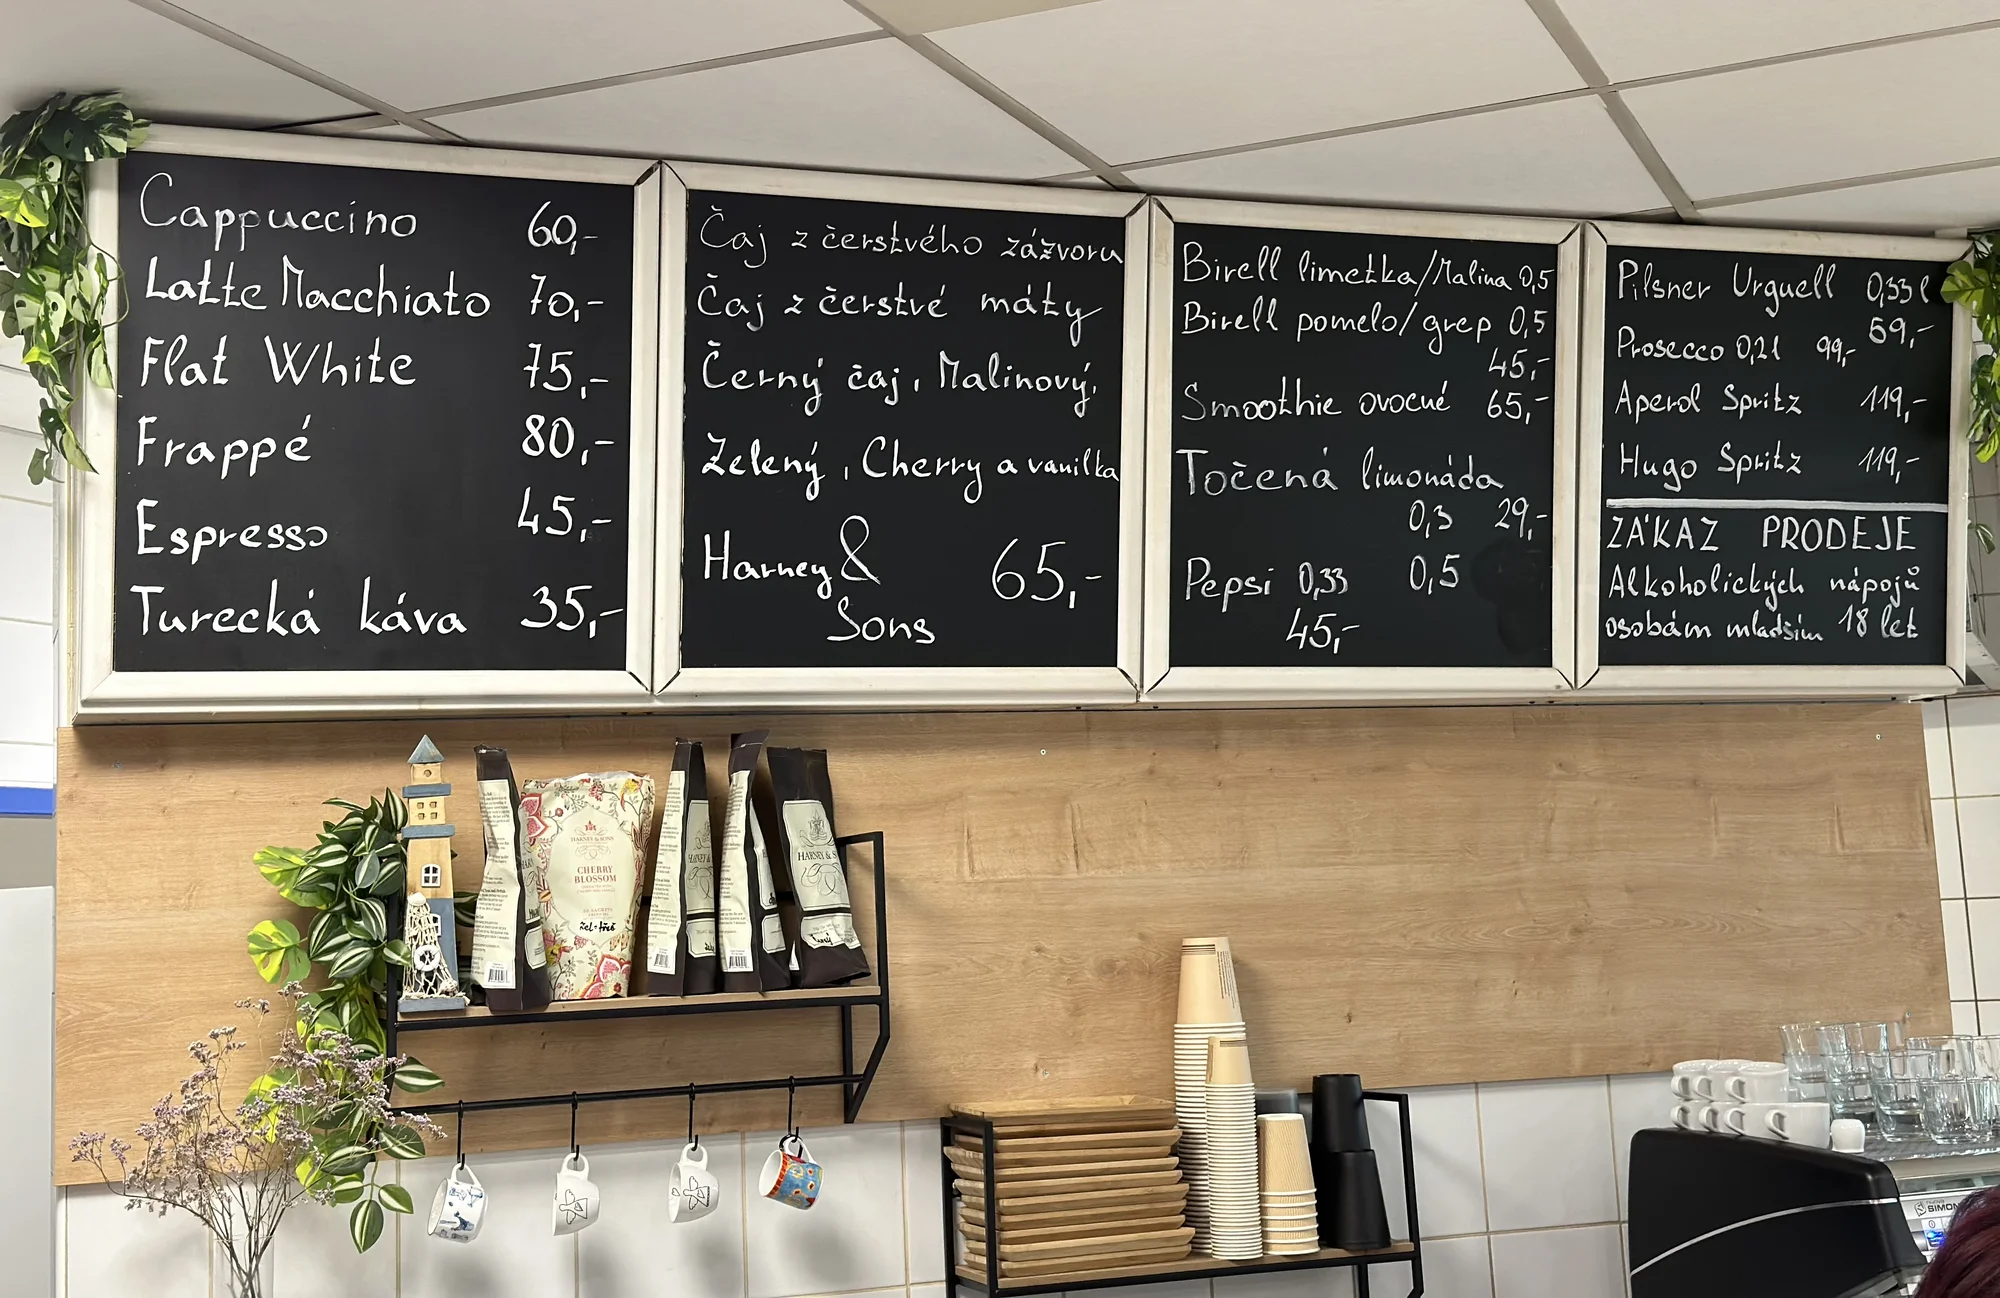 Cappuccino 60,-
Latte Macchiato 70,-
Flat White 75,-
Frappé 80,-
Espresso 45,-
Turecká káva 35,-
Čaj z čerstvého zázvoru
Čaj z čerstvé máty
Černý čaj, Malinový,
Zelený, Cherry a vanilka
Harney &
Sons 65,-
Birell limetka/Malina 0,5
Birell pomelo/grep 0,5
45,-
Smoothie ovocné 65,-
Točená limonáda
0,3 29,-
0,5
Pepsi 0,33
45,-
Pilsner Urquell 0,33 l
59,-
Prosecco 0,2l 99,-
Aperol Spritz 119,-
Hugo Spritz 119,-
ZÁKAZ PRODEJE
Alkoholických nápojů
osobám mladším 18 let
HARNEY & SONS
CHERRY
BLOSSOM
HARNEY & S
SIMON